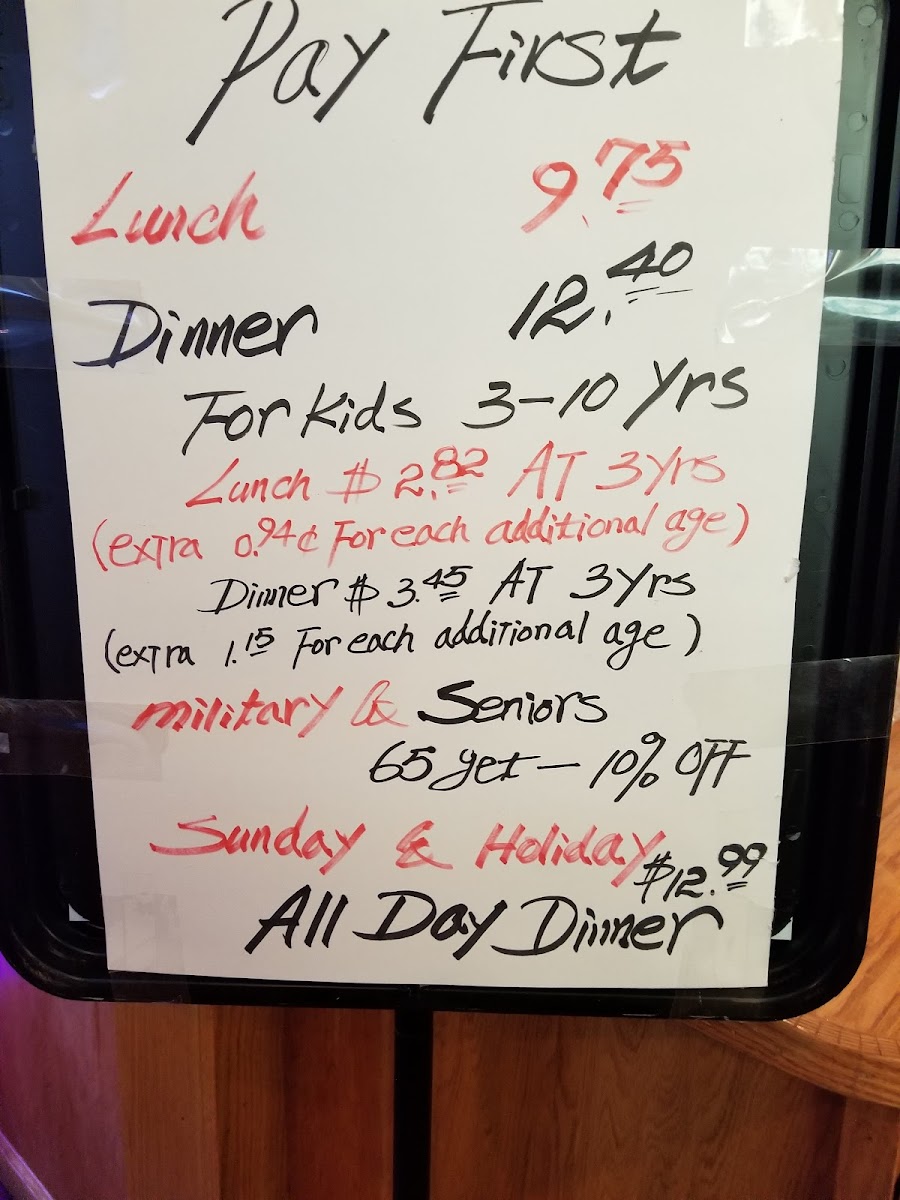 Pay First
Lunch 9.75
Dinner 12.40
For Kids 3-10 Yrs
Lunch $2.82 AT 3Yrs
(extra 0.94¢ For each additional age)
Dinner $3.45 AT 3Yrs
(extra 1.15 For each additional age)
military & Seniors
65 yet - 10% OFF
Sunday & Holiday $12.99
All Day Dinner